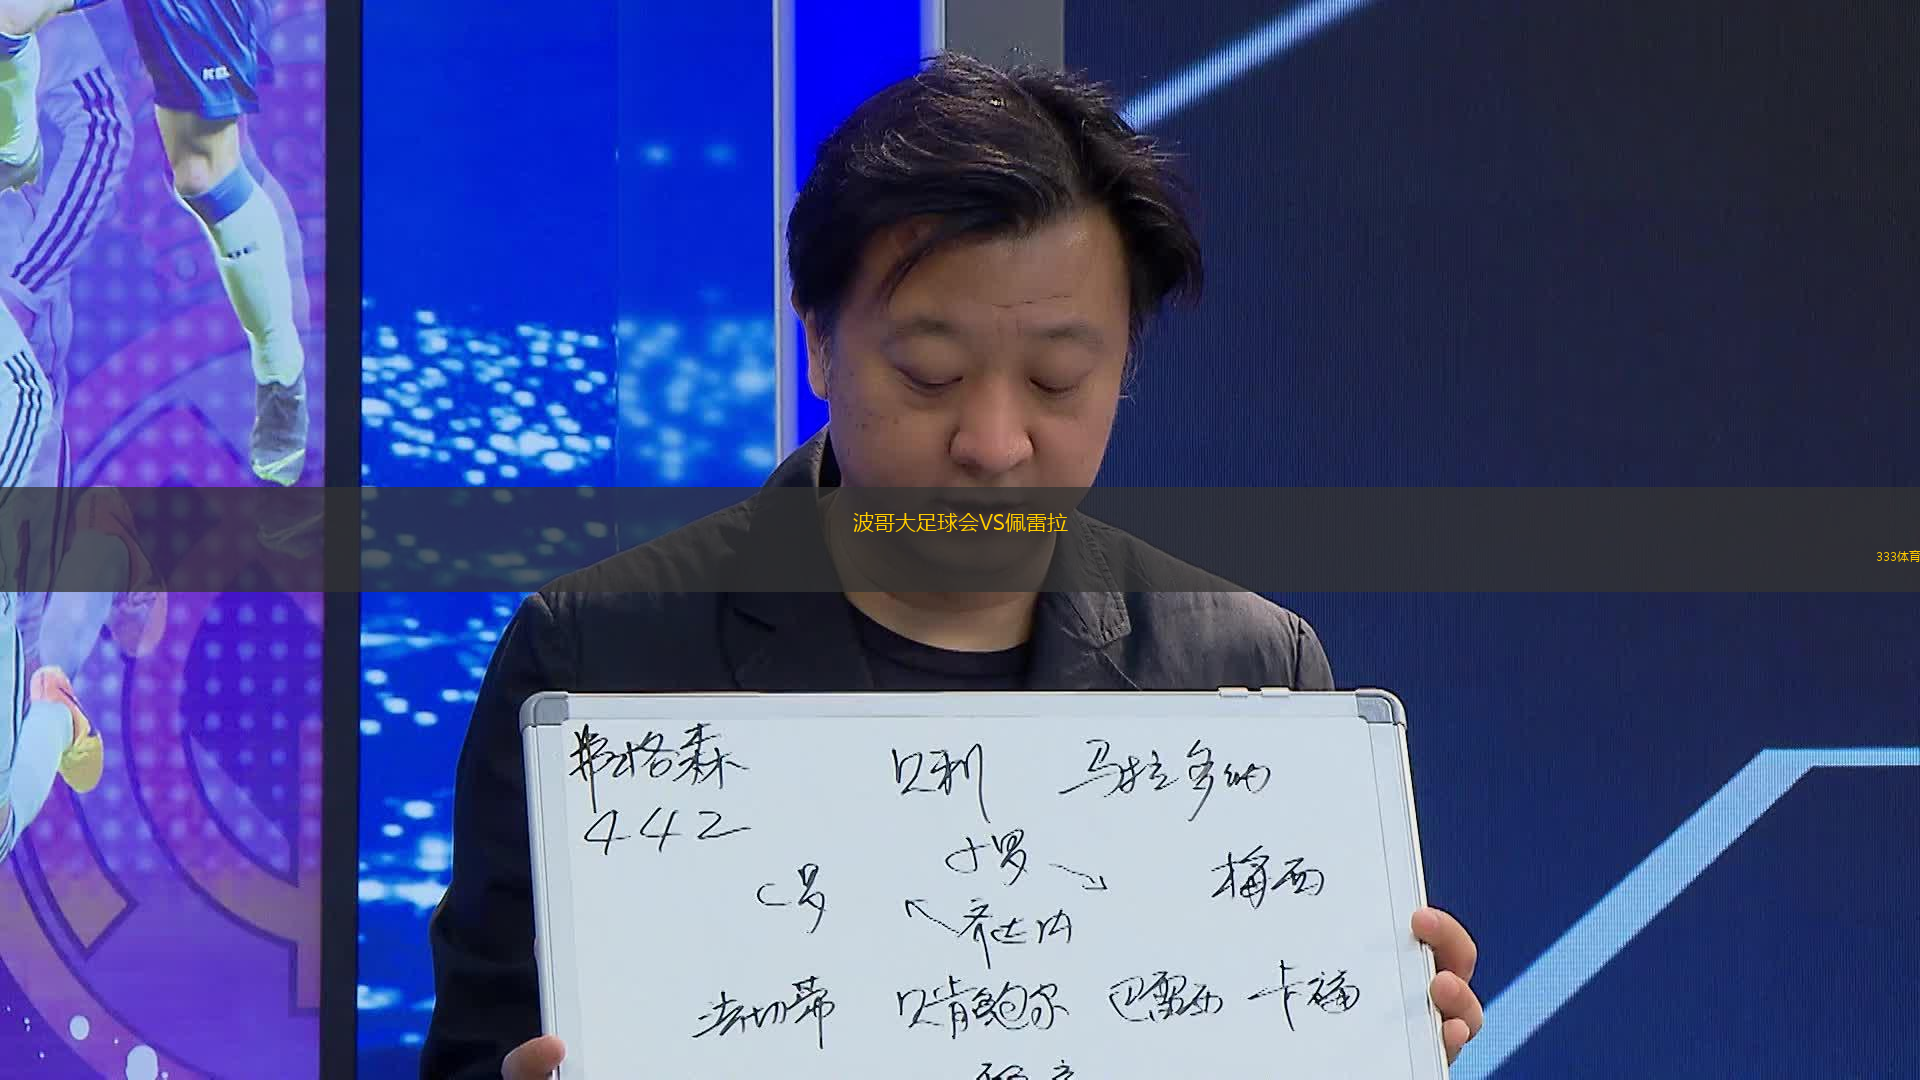 波哥大足球会VS佩雷拉
333体育
弗格森 贝利 马拉多纳
442
小罗
C罗 梅西
齐达内
法切蒂 贝肯鲍尔 巴雷西 卡福